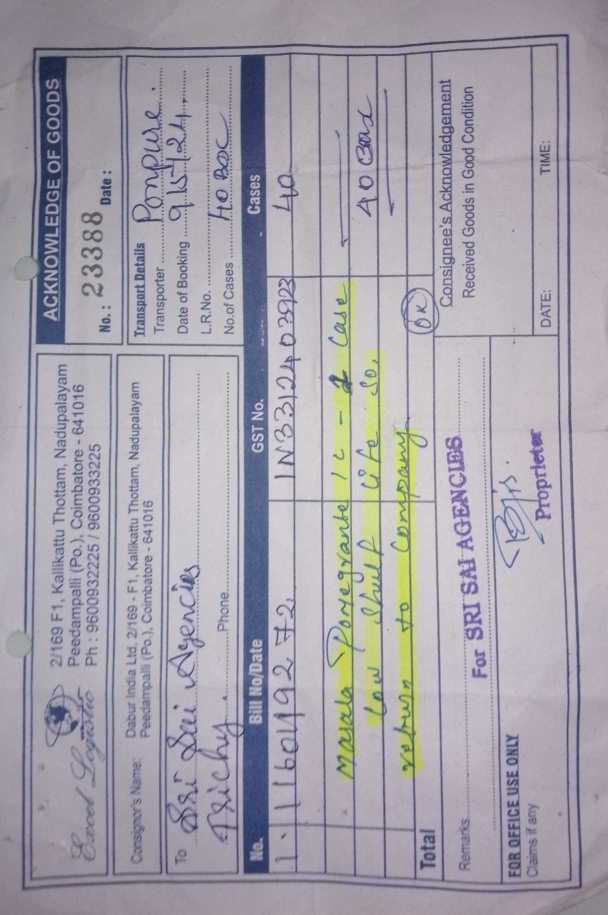 Excel Logistic
2/169 F1, Kallikattu Thottam, Nadupalayam
Peedampalli (Po.), Coimbatore - 641016
Ph : 9600932225 / 9600933225
ACKNOWLEDGE OF GOODS
No. : 23388 Date :
Consignor's Name: Dabur India Ltd, 2/169 - F1, Kallikattu Thottam, Nadupalayam
Peedampalli (Po.), Coimbatore - 641016
To Sri Sai Agencies
Trichy. Phone
Transport Details
Transporter Ponpure.
Date of Booking 9/5/24.
L.R.No.
No.of Cases 40 Box
No. Bill No/Date GST No. Cases
1. 1160119272 IN3312403923 40
masala Pomegrante 1L - 1 Case
Low Shulf Life So,
return to Company.
40 Box
Total OK
Remarks
For SRI SAI AGENCIES
Proprieter
Consignee's Acknowledgement
Received Goods in Good Condition
FOR OFFICE USE ONLY
Claims if any
DATE: TIME: